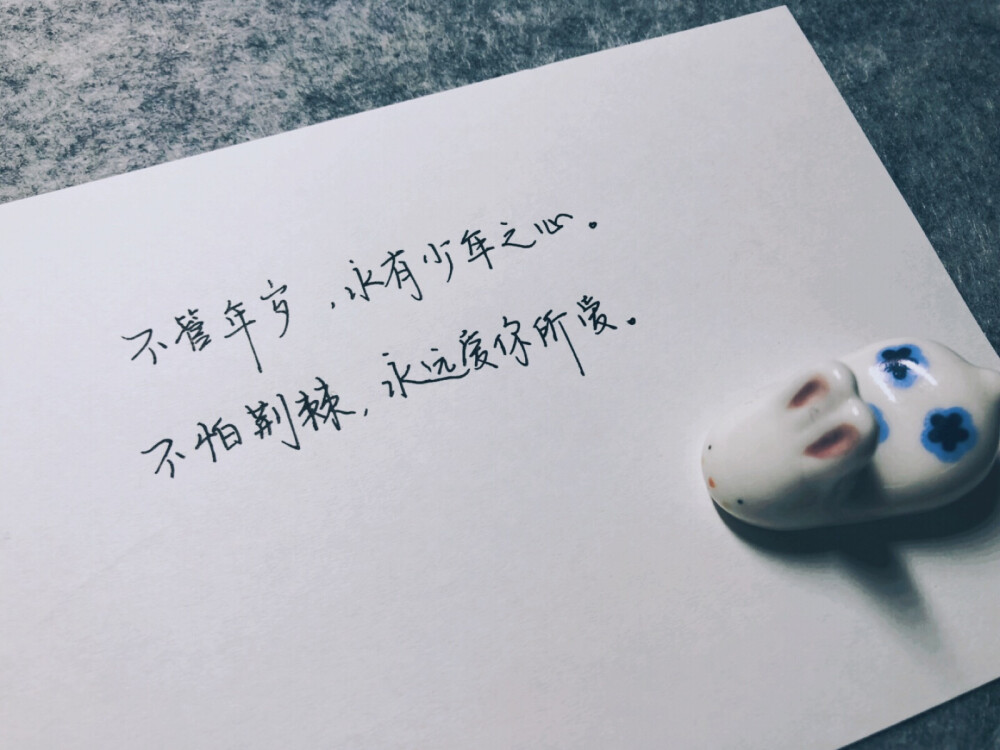 不管年岁，永有少年之心。
不怕荆棘，永远爱你所爱。